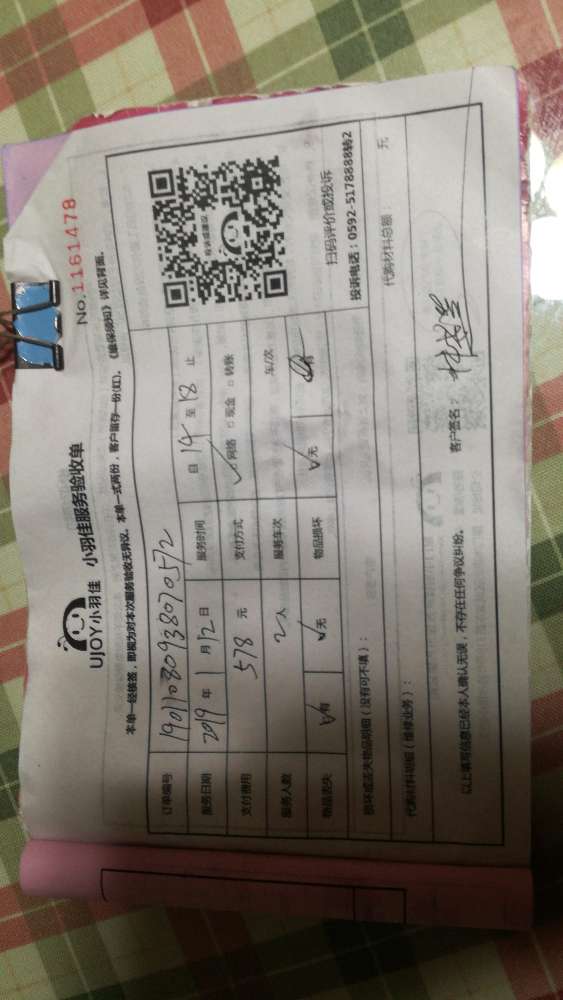 UJOY小羽佳 小羽佳服务验收单 No.1161478
本单一经核签，即视为对本次服务验收无异议。本单一式两份，客户留存一份(红)。《维保须知》详见背面。
订单编号 1901108093807 0572
服务日期 2019 年 1 月 12 日 服务时间 自 14 至 18 止
支付费用 578 元 支付方式 ✓网络 □现金 □转账
服务人数 2人 服务车次 车/次
物品丢失 ✓有 ✓无 物品损坏 ✓无 有
投诉或建议
扫码评价或投诉
投诉电话：0592-5178888转2
损坏或丢失物品明细（没有可不填）：
代购材料明细（维修业务）： 代购材料总额： 元
以上填写信息已经本人确认无误，不存在任何争议纠纷。 客户签名：